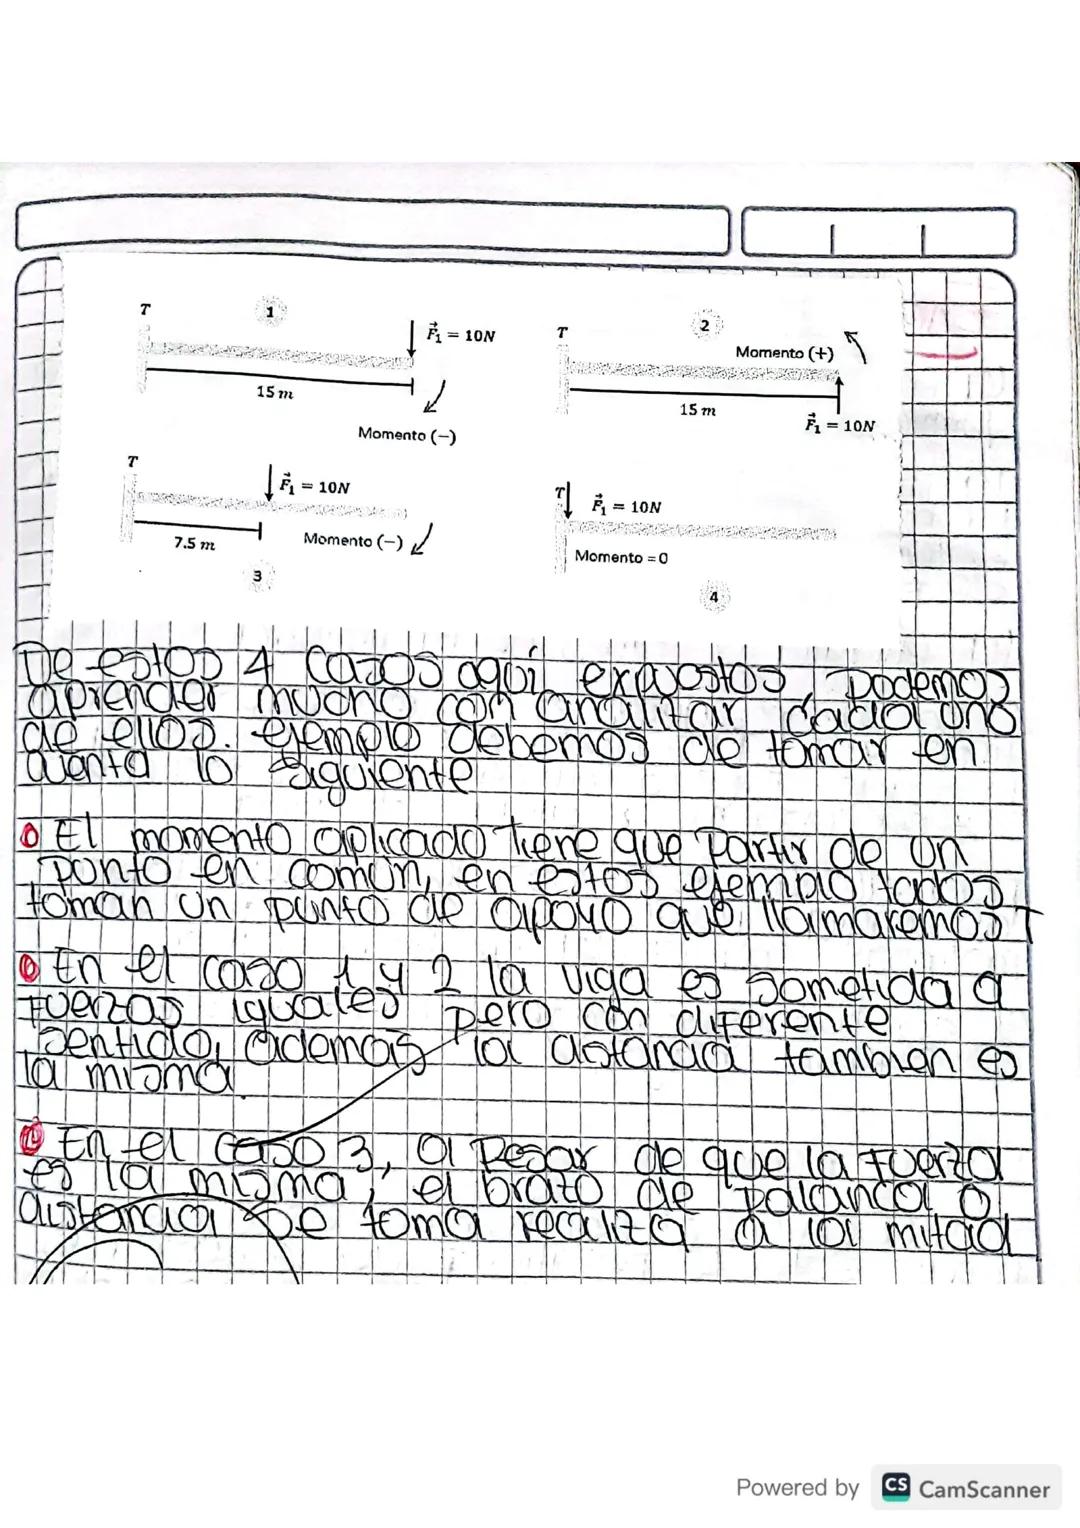 T
1
F₁ = 10N
15 m
Momento (−)
T
2
Momento (+)
15 m
F₁ = 10N
T
F₁ = 10N
7.5 m
Momento (−)
3
T
F₁ = 10N
Momento = 0
4
De estos 4 casos aqui expuestos, podemos
aprender mucho con analizar cada uno
de ellos. ejemplo debemos de tomar en
cuenta lo siguiente
El momento aplicado tiene que partir de un
punto en común, en estos ejemplo todos
toman un punto de apoyo que llamaremos T
En el caso 1 y 2 la viga es sometida a
fuerzas iguales pero con diferente
sentido, además la distancia tambien es
la misma.
En el caso 3, a pesar de que la fuerza
es la misma, el brazo de palanca o
distancia se toma realiza a la mitad
Powered by CS CamScanner